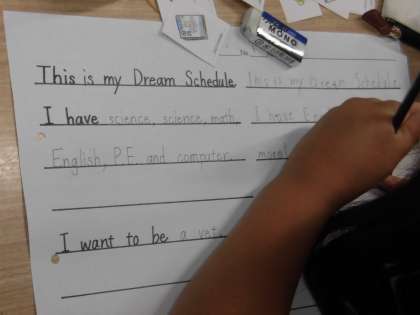 MONO
This is my Dream Schedule. This is my Dream Schedule.
I have science, science, math, I have
English, P.E. and computer.
I want to be a vet.